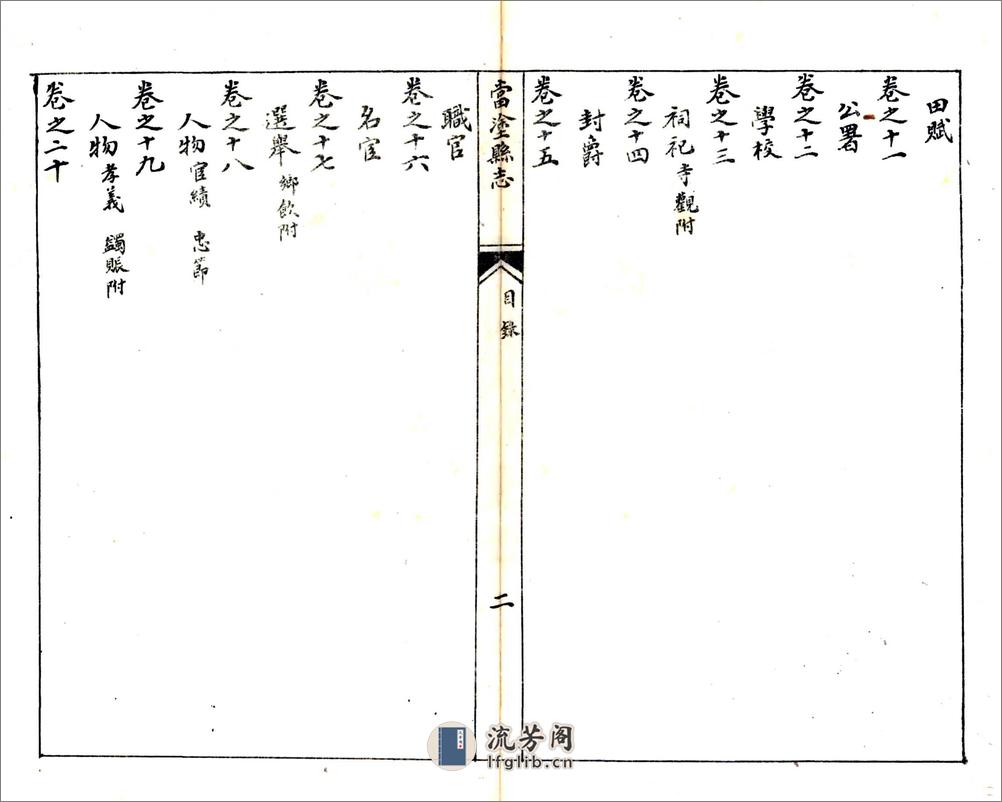 田賦
卷之十一
公署
卷之十二
學校
卷之十三
祠祀 寺觀附
卷之十四
封爵
卷之十五
當塗縣志
目錄
二
職官
卷之十六
名宦
卷之十七
選舉 鄉飲附
卷之十八
人物 宦績 忠節
卷之十九
人物 孝義 蠲賑附
卷之二十
流芳阁
lfglib.cn